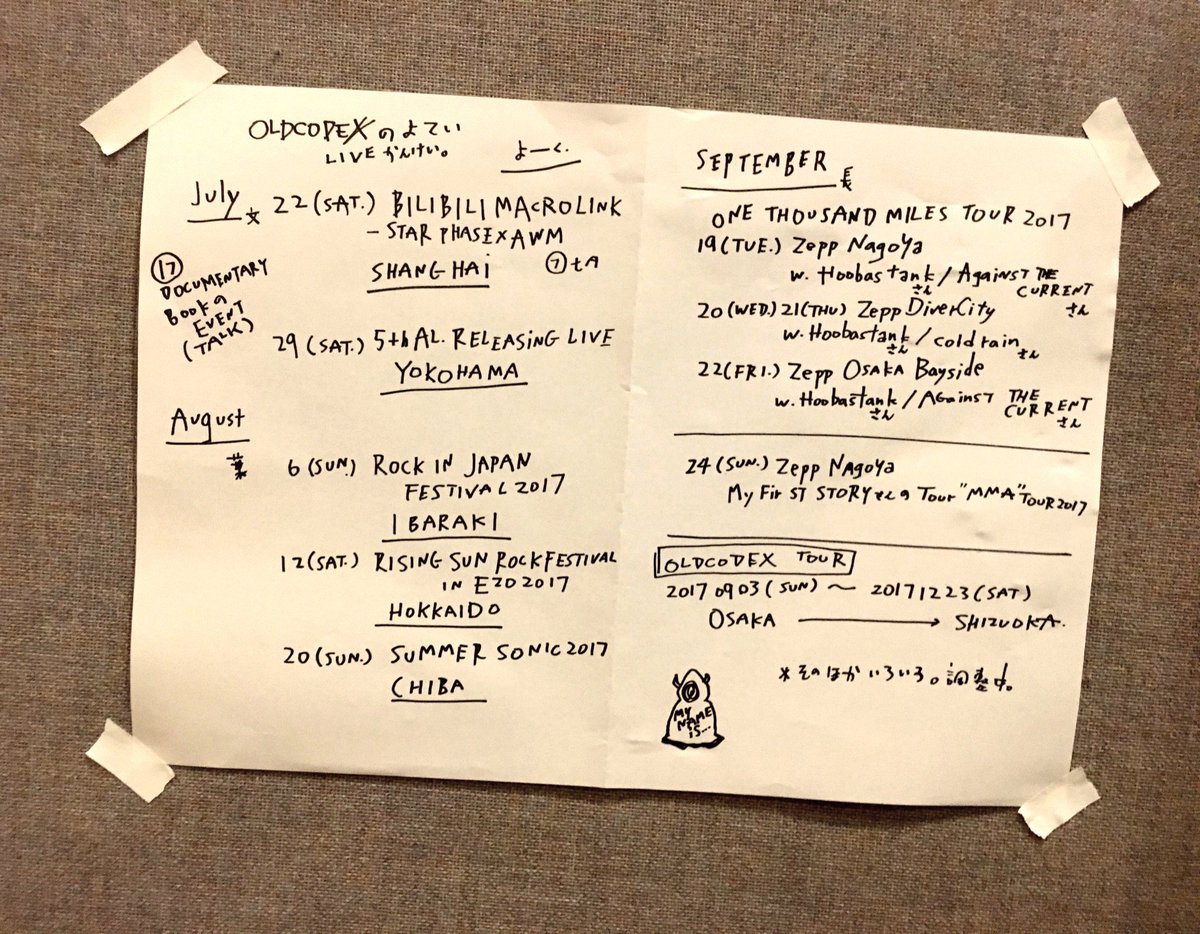 OLDCODEXのよてい
LIVEかんけい。
よーく.
July 文
22 (SAT.) BILIBILI MACROLINK
– STAR PHASE×AWM
SHANGHAi
⑰
DOCUMENTARY
BOOKの
EVENT
(TALK)
29 (SAT.) 5th AL. RELEASiNG LIVE
YOKOHAMA
August
葉
6 (SUN.) ROCK IN JAPAN
FESTIVAL 2017
IBARAKI
12 (SAT.) RISING SUN ROCK FESTIVAL
iN EZO 2017
HOKKAIDO
20 (SUN.) SUMMER SONIC 2017
CHIBA
SEPTEMBER 長
ONE THOUSAND MILES TOUR 2017
19 (TUE.) Zepp Nagoya
w. Hoobastank さん / Against THE CURRENT さん
20 (WED.) 21 (THU) Zepp DiverCity
w. Hoobastank さん / coldrain さん
22 (FRI.) Zepp OSAKA Bayside
w. Hoobastank さん / Against THE CURRENT さん
24 (SUN.) Zepp Nagoya
My FirST STORYさんのTour "MMA" TOUR 2017
OLDCODEX TOUR
2017 09 03 (SUN) ～ 2017 12 23 (SAT)
OSAKA → SHIZUOKA.
※そのほかいろいろ。調整中。
MY
NAME
iS...